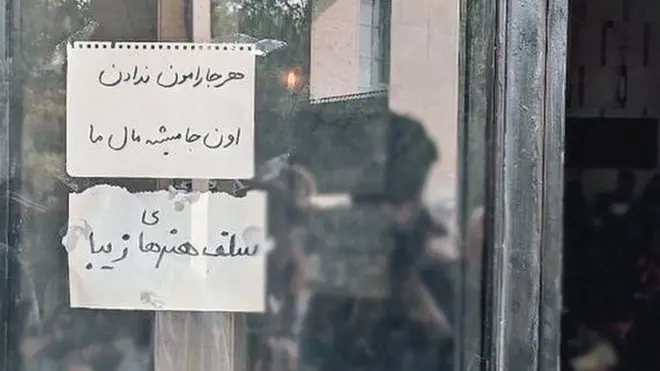 هرجا رامون ندادن
اون جا میشه مال ما
سلف هنرهای زیبا